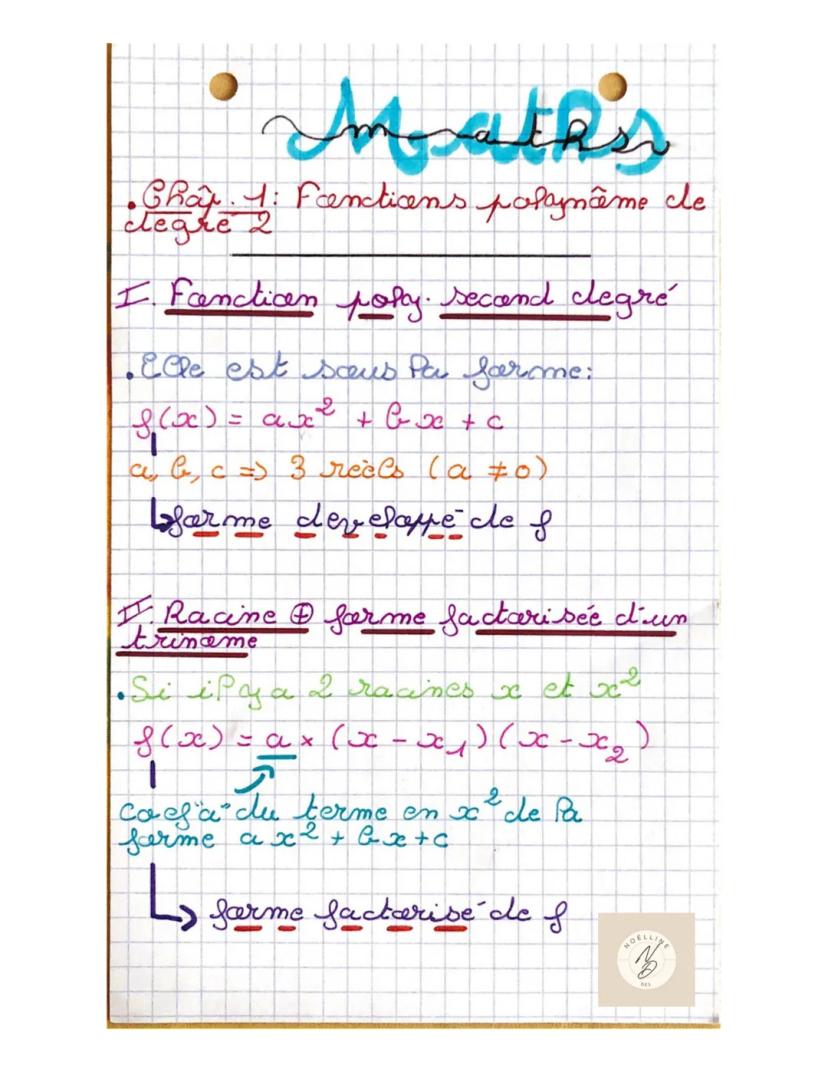 Maths
maths
. Chap. 1: Fonctions polynôme de
degré 2
I. Fonction poly. second degré
. Elle est sous la forme:
f(x) = ax² + bx + c
a, b, c => 3 réels (a ≠ 0)
↳ forme developpé de f
II. Racine ⊕ forme factorisée d'un
triname
. Si il y a 2 racines x et x²
f(x) = a × (x - x₁)(x - x₂)
coef "a" du terme en x² de la
forme ax² + bx + c
↳ forme factorisé de f
NOELLINE
ND
DES